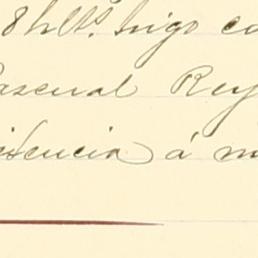 8 hlts. trigo
Pascual Rey
idencia á m